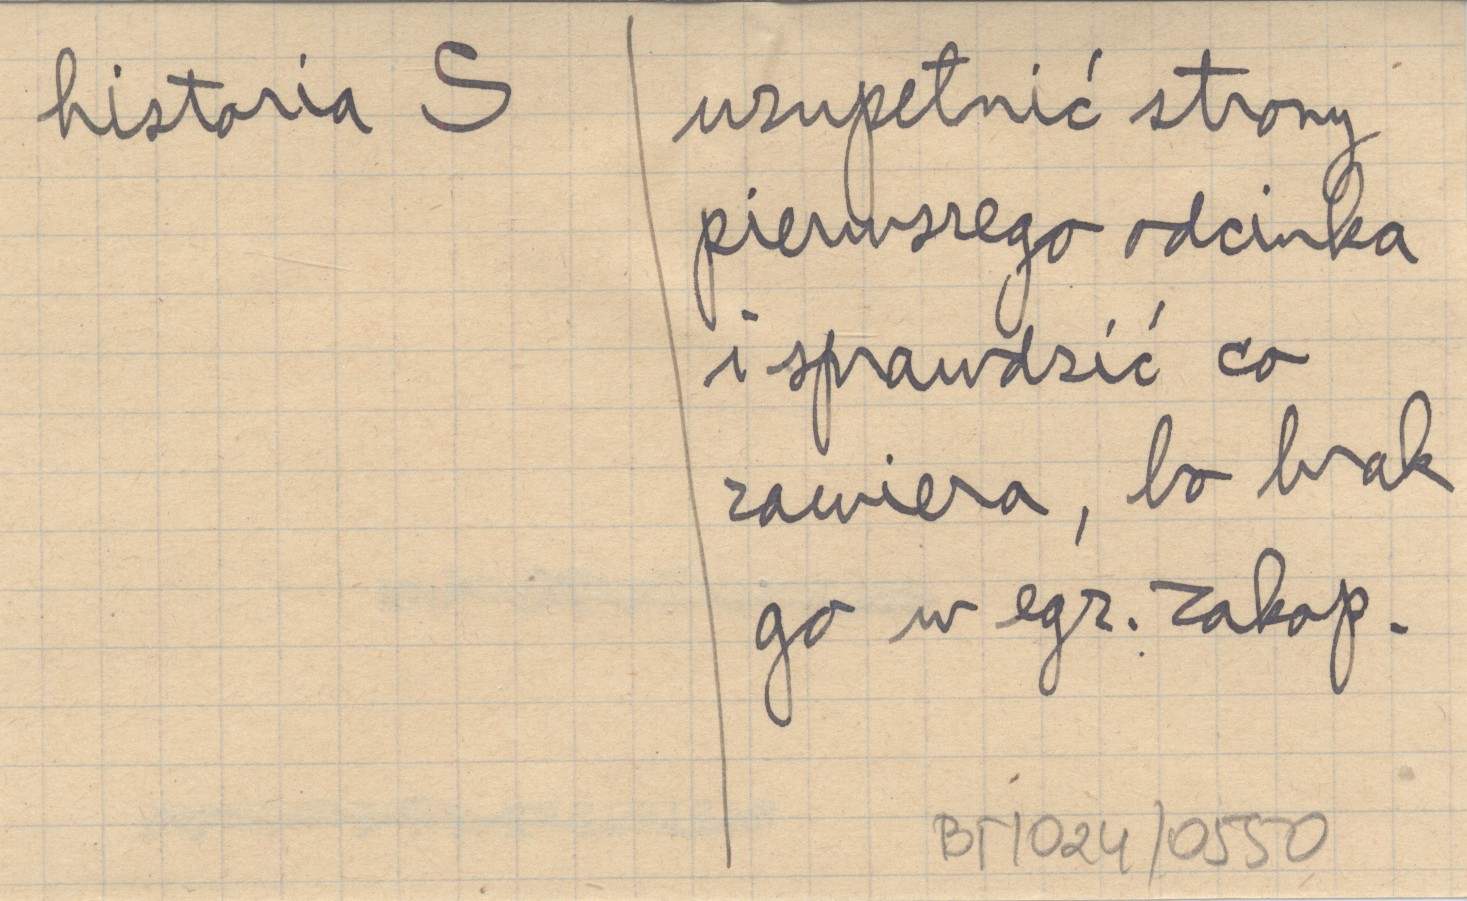 historia S
uzupełnić strony
pierwszego odcinka
i sprawdzić co
zawiera, bo brak
go w egz. zakop.
BT1024/0550